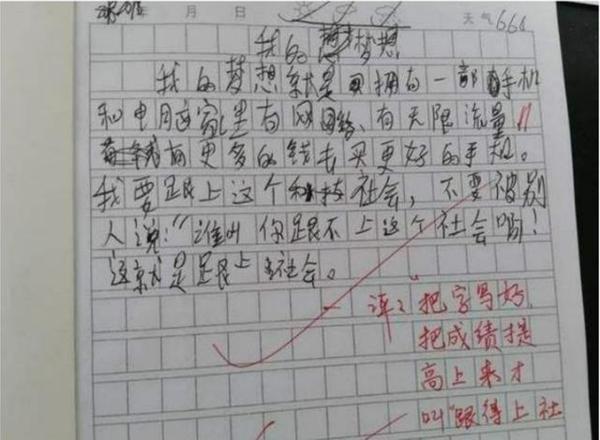 年 月 日 天气666
我的梦想
我的梦想就是拥有一部手机
和电脑家里有网络、有无限流量!!
有更多的钱去买更好的手机。
我要跟上这个科技社会,不要被别
人说:“谁叫你跟不上这个社会哟!
这就是跟上社会。
评:把字写好,
把成绩提
高上来才
叫“跟得上社